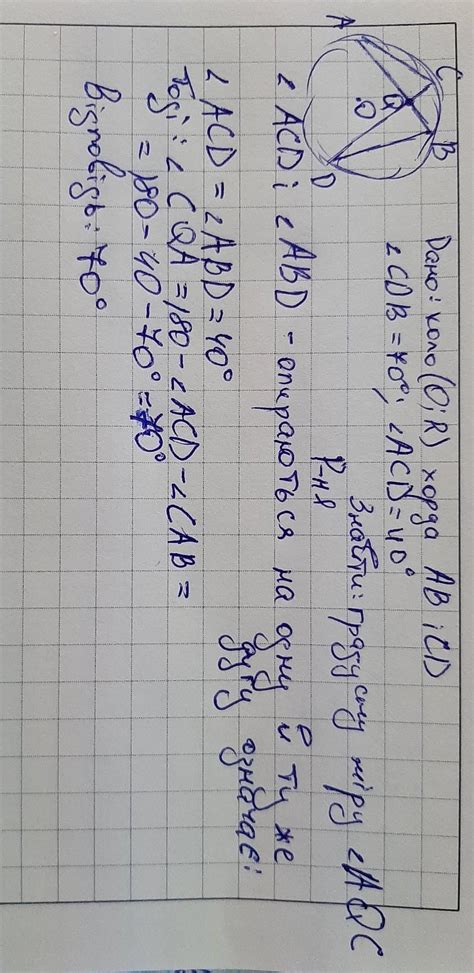 A
C
Q
.O
B
D
Дано: коло (O; R) хорда AB і CD
∠CDB = 70°; ∠ACD = 40°
Знайти: градусну міру ∠AQC
Р-ня
∠ACD і ∠ABD - опираються на одну й ту же
дугу означає:
∠ACD = ∠ABD = 40°
Тоді: ∠CQA = 180 - ∠ACD - ∠CAB =
= 180 - 40 - 70° = 70°
Відповідь: 70°